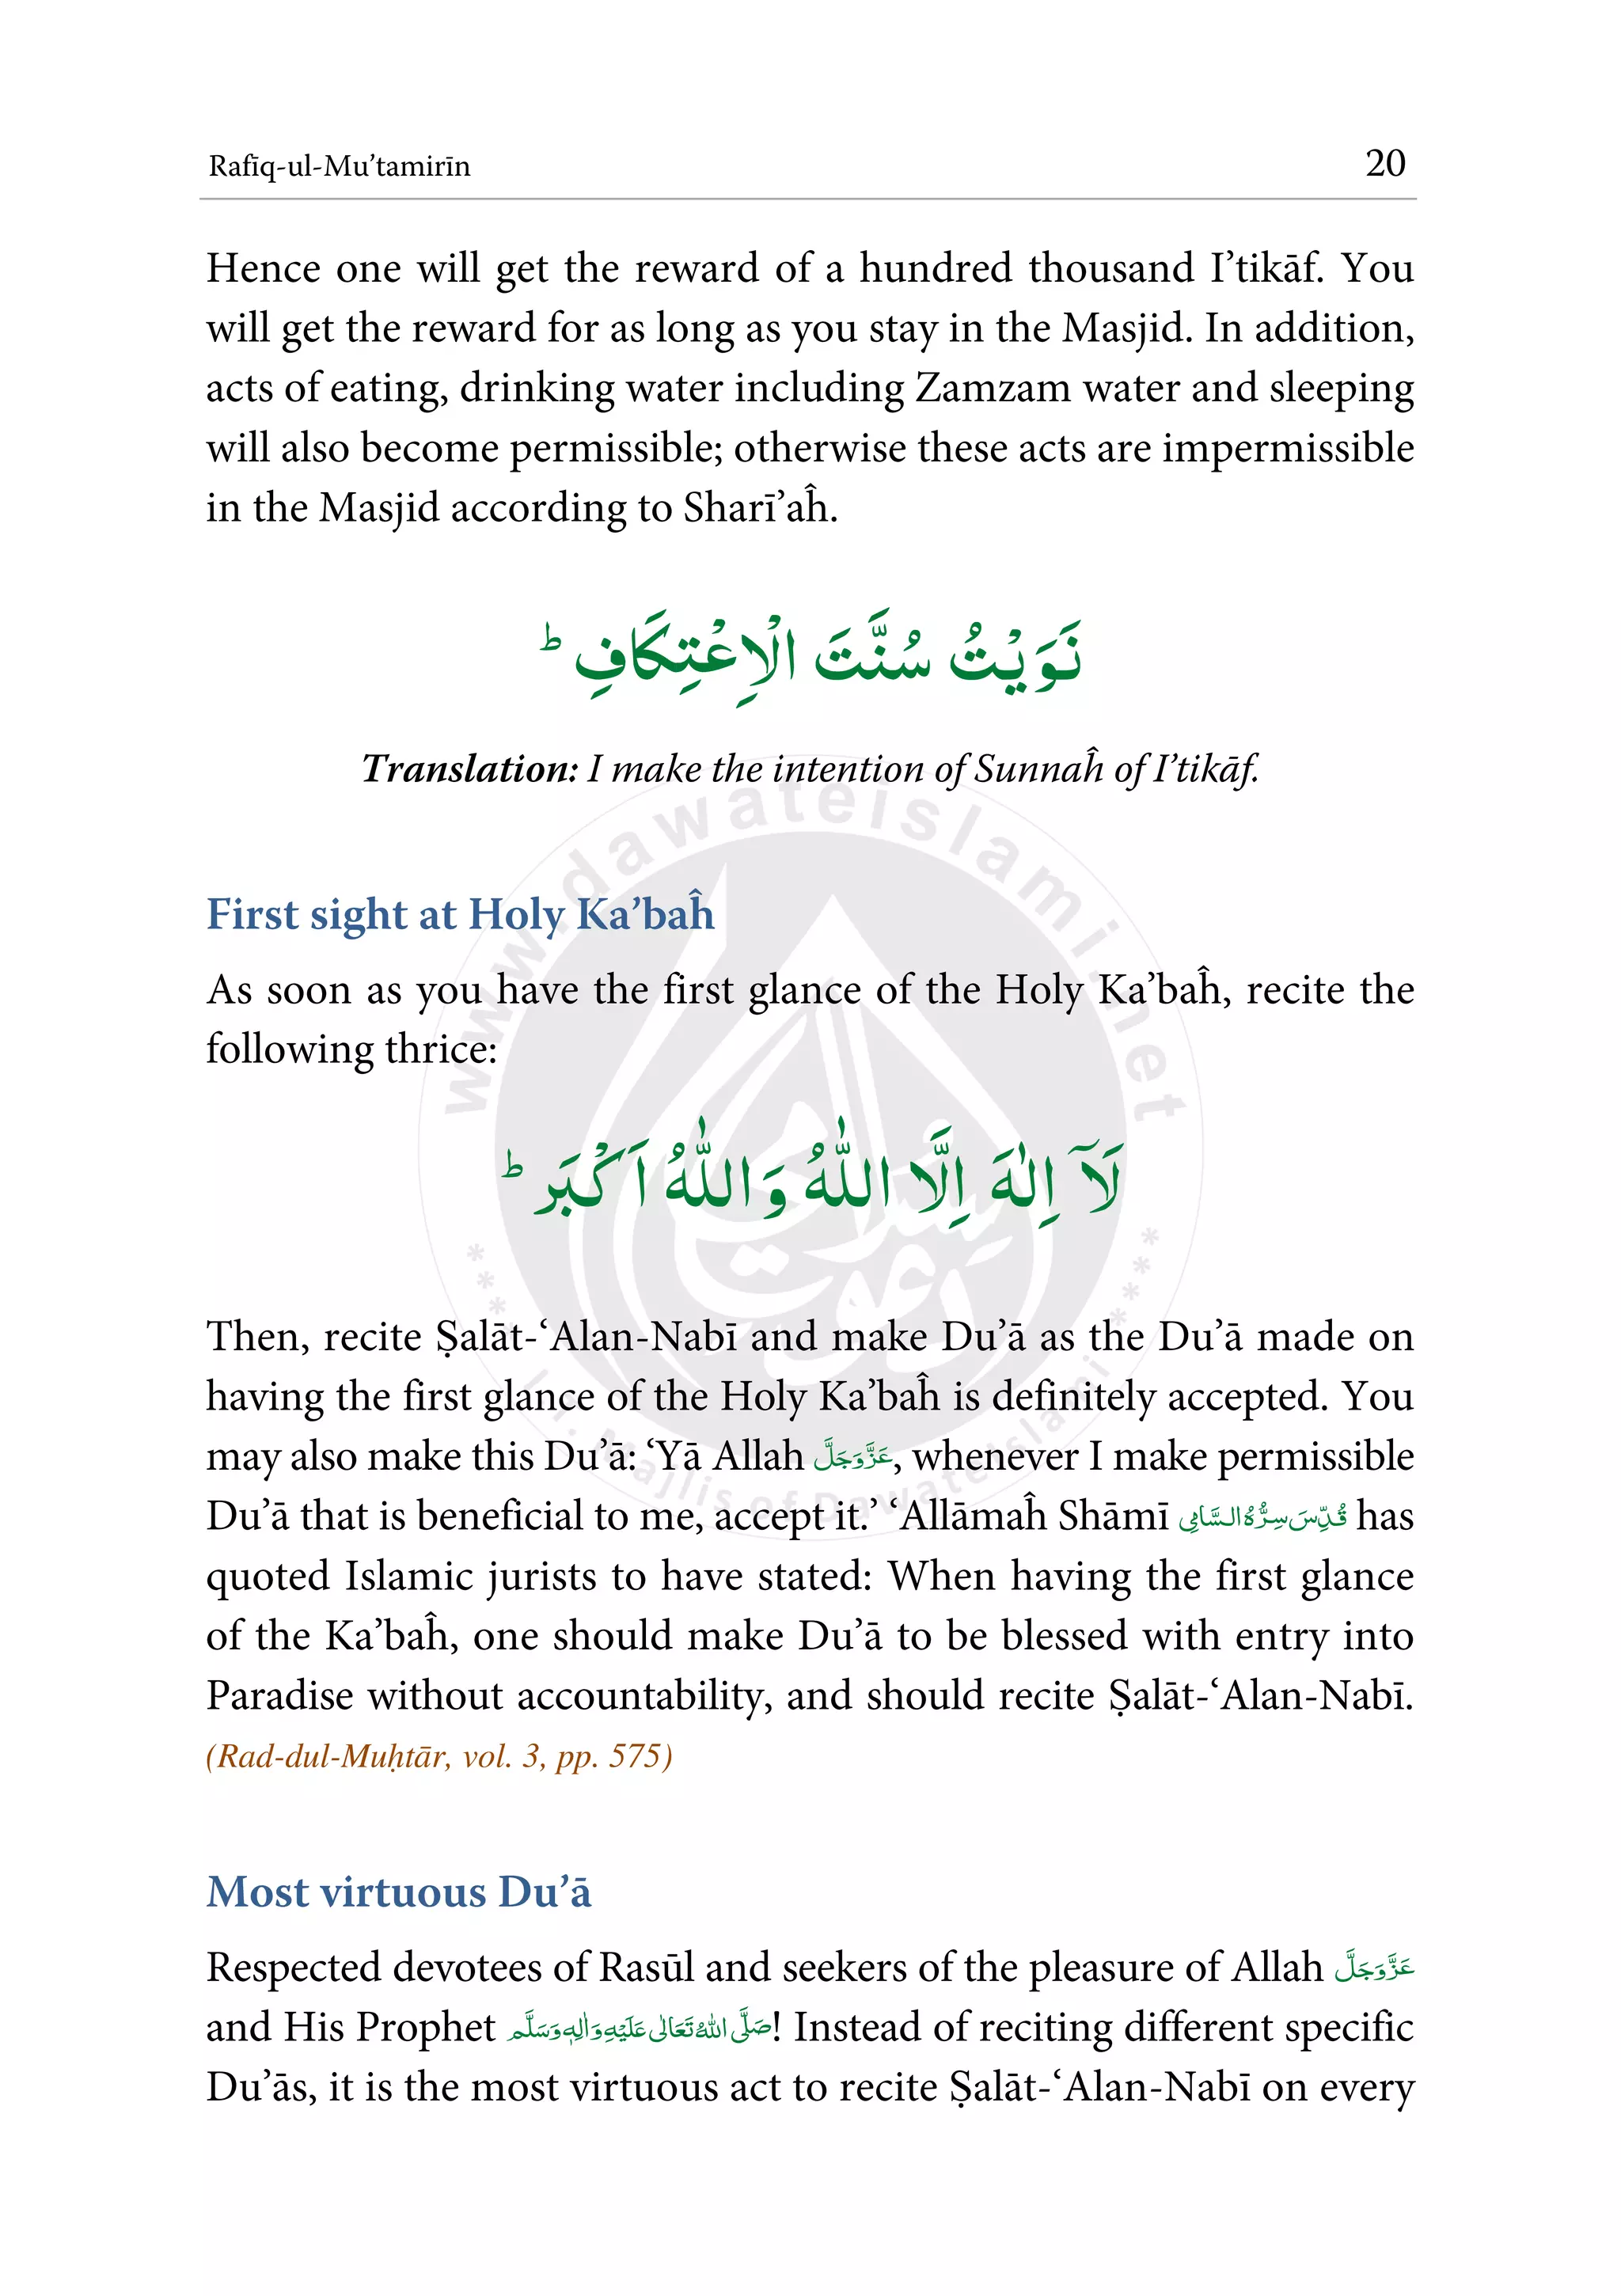 Rafīq-ul-Mu’tamirīn 20
Hence one will get the reward of a hundred thousand I’tikāf. You
will get the reward for as long as you stay in the Masjid. In addition,
acts of eating, drinking water including Zamzam water and sleeping
will also become permissible; otherwise these acts are impermissible
in the Masjid according to Sharī’aĥ.
نَوَيْتُ سُنَّتَ الْاِعْتِكَافِ ؕ
Translation: I make the intention of Sunnaĥ of I’tikāf.
First sight at Holy Ka’baĥ
As soon as you have the first glance of the Holy Ka’baĥ, recite the
following thrice:
لَآ اِلٰهَ اِلَّا اللّٰهُ وَاللّٰهُ اَكْبَر ؕ
Then, recite Ṣalāt-‘Alan-Nabī and make Du’ā as the Du’ā made on
having the first glance of the Holy Ka’baĥ is definitely accepted. You
may also make this Du’ā: ‘Yā Allah عَزَّوَجَلَّ, whenever I make permissible
Du’ā that is beneficial to me, accept it.’ ‘Allāmaĥ Shāmī قُدِّسَ سِرُّہُ السَّامِی has
quoted Islamic jurists to have stated: When having the first glance
of the Ka’baĥ, one should make Du’ā to be blessed with entry into
Paradise without accountability, and should recite Ṣalāt-‘Alan-Nabī.
(Rad-dul-Muḥtār, vol. 3, pp. 575)
Most virtuous Du’ā
Respected devotees of Rasūl and seekers of the pleasure of Allah عَزَّوَجَلَّ
and His Prophet صَلَّى اللهُ تَعَالٰى عَلَيْهِ وَاٰلِهٖ وَسَلَّم! Instead of reciting different specific
Du’ās, it is the most virtuous act to recite Ṣalāt-‘Alan-Nabī on every
www.dawateislami.net
I.T. Majlis of DawateIslami